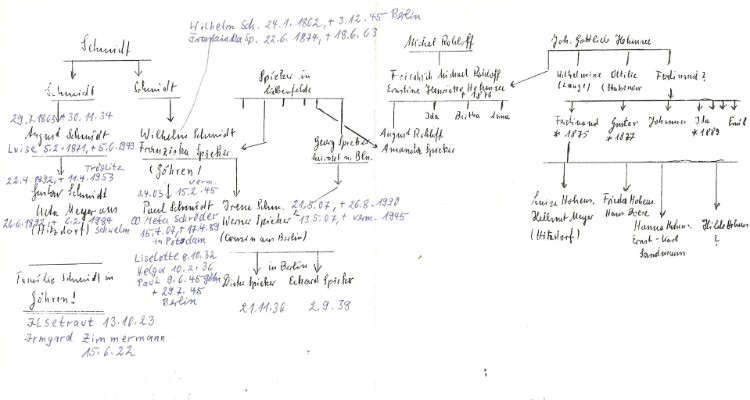 Wilhelm Sch. 24.1.1862, + 3.12.45 Berlin
Franziska Sp. 22.6.1874, + 18.6.63
Schmidt
Schmidt
Schmidt
29.7.1863 + 30.11.34
August Schmidt
Luise 5.2.1871, + 5.6.1949
Tröglitz
22.4.1892, + 11.4.1953
Gustav Schmidt
Meta Meyer aus
26.6.1892, + 6.2.1984
(Hitzdorf) Schwelm
Wilhelm Schmidt
Franziska Spieker
(Göhren!
verm.
24.03. 15.2.45
Paul Schmidt
∞ Meta Schröder
15.4.07, + 17.4.89
in Potsdam
Liselotte 8.10.32
Helga 10.2.36
Paul 9.6.45 Göhr.
+ 29.7.45
Berlin
Familie Schmidt in
Göhren!
Ilsetraut 13.10.23
Irmgard Zimmermann
15.6.22
Spieker in
Georg Spieker
Irene Schm. 21.5.07, + 26.8.1990
Werner Spieker 13.5.07, + verm. 1945
(Cousin aus Berlin)
in Berlin
Dieter Spieker
Eckard Spieker
21.11.36
2.9.38
Michel Rohloff
Friedrich Michael Rohloff
Ernstine Henriette Hohensee
+ 1878
August Rohloff
Amanda Spieker
Ida
Bertha
Anna
Joh. Gottlieb Hohensee
Wilhelmine
(Lange)
Ottilie
Ferdinand ?
Ferdinand
* 1875
Gustav
* 1877
Johannes
Ida
* 1889
Emil
Luise Hohens.
Hellmut Meyer
(Hitzdorf)
Frieda Hohens.
Hans
Hanna Hohens.
Ernst-Karl
Hilde Hohens.
?